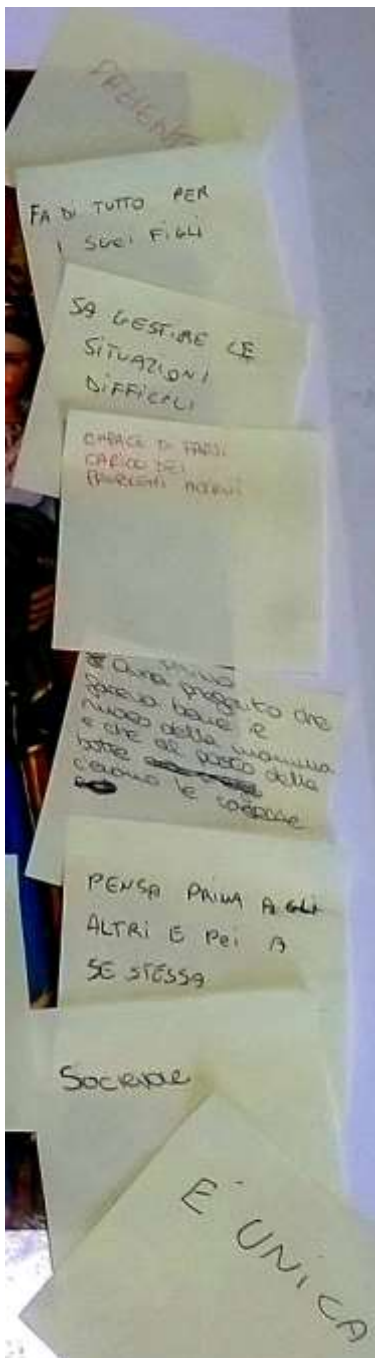 FA DI TUTTO PER
I SUOI FIGLI
SA GESTIRE LE
SITUAZIONI
DIFFICILI
CAPACE DI FARSI
CARICO DEI
PROBLEMI
che
bene e
museo della mamma
e che al posto della
botte
c'erano le
PENSA PRIMA AGLI
ALTRI E POI A
SE STESSA
Socievole
E' UNICA